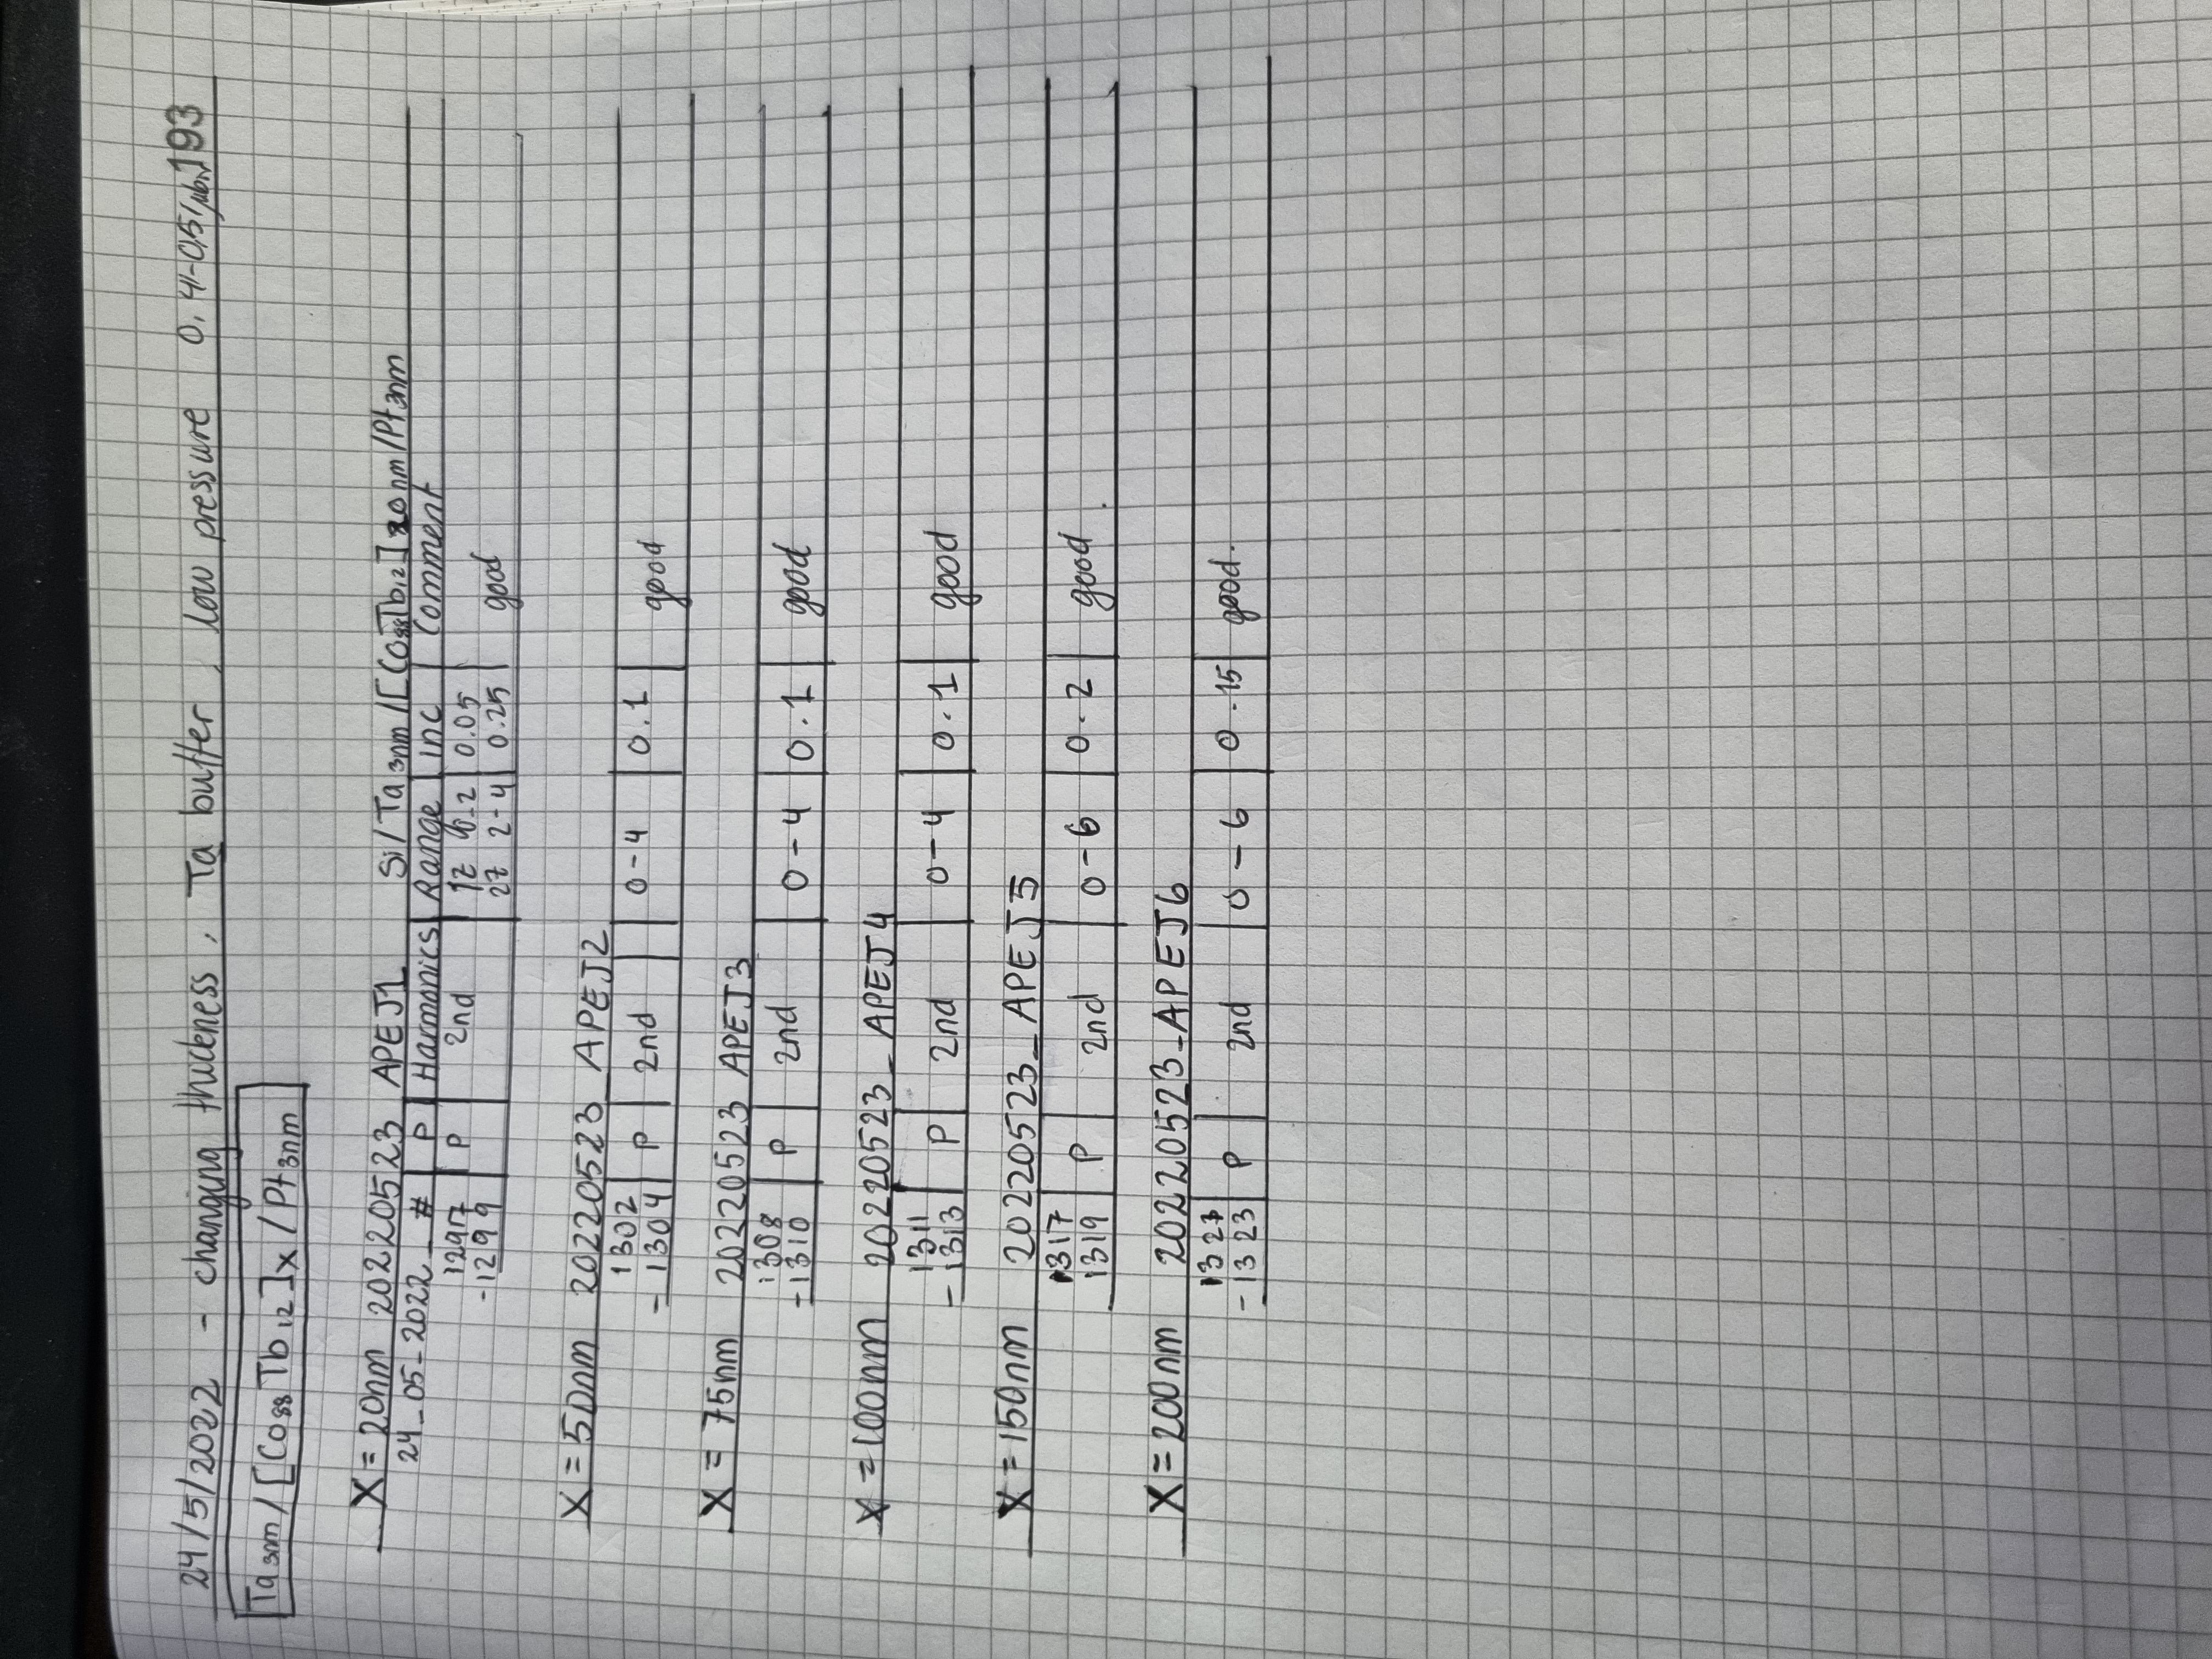 24/5/2022 - changing thickness, Ta buffer, low pressure 0,4-0,5 μb 193
Ta3nm/[Co88Tb12]x/Pt3nm
X=20nm 20220523 APEJ1 Si/Ta3nm/[Co88Tb12]20nm/Pt3nm
24_05-2022_# P Harmonics Range inc Comment
1297 P 2nd 0-2 0.05
-1299 2-4 0.25 good
X=50nm 20220523_APEJ2
1302 P 2nd 0-4 0.1 good
-1304
X=75nm 20220523 APEJ3
1308 P 2nd 0-4 0.1 good
-1310
X=100nm 20220523_APEJ4
1311 P 2nd 0-4 0.1 good
-1313
X=150nm 20220523_APEJ5
1317 P 2nd 0-6 0.2 good.
1319
X=200nm 20220523-APEJ6
1321 P 2nd 0-6 0.15 good.
-1323